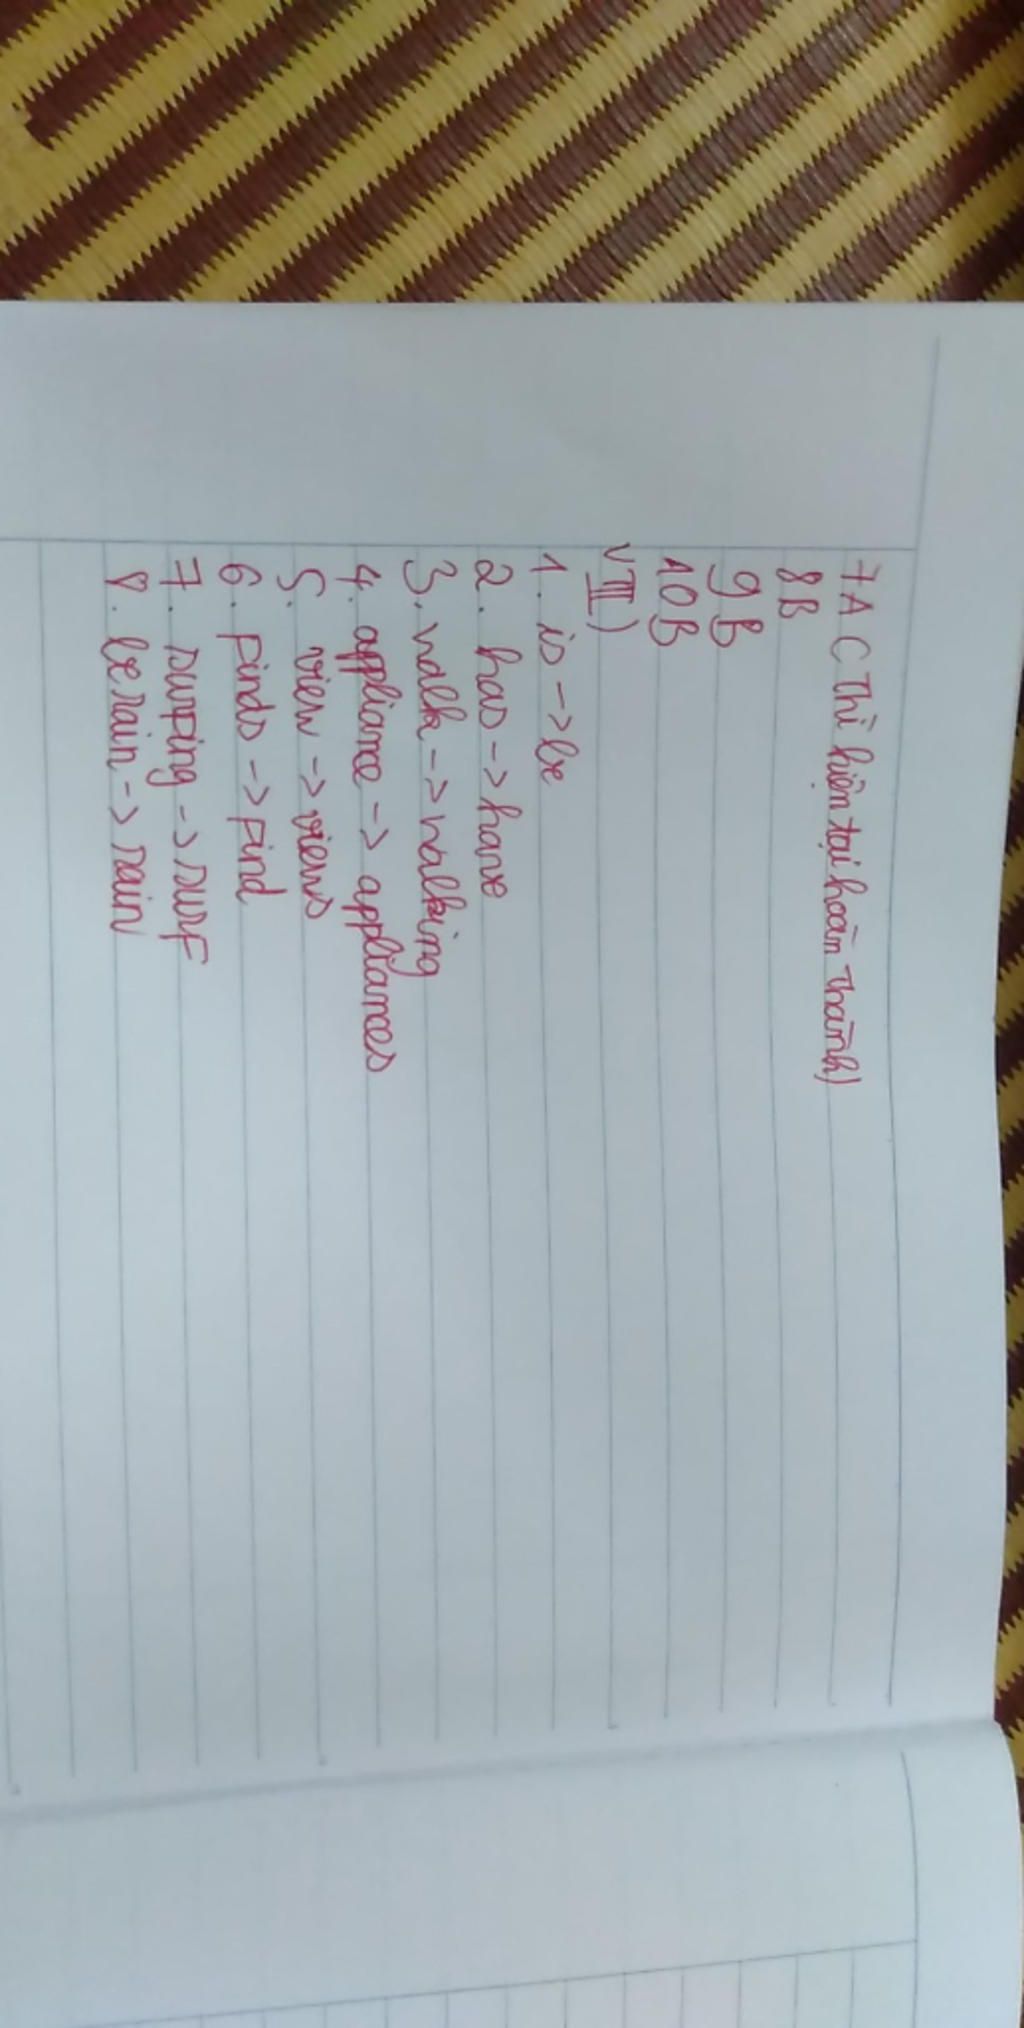 7A (Thì hiện tại hoàn thành)
8B
9B
10B
VIII)
1. is -> be
2. has -> have
3. walk -> walking
4. appliance -> appliances
5. view -> views
6. finds -> find
7. surfing -> surf
8. be rain -> rain